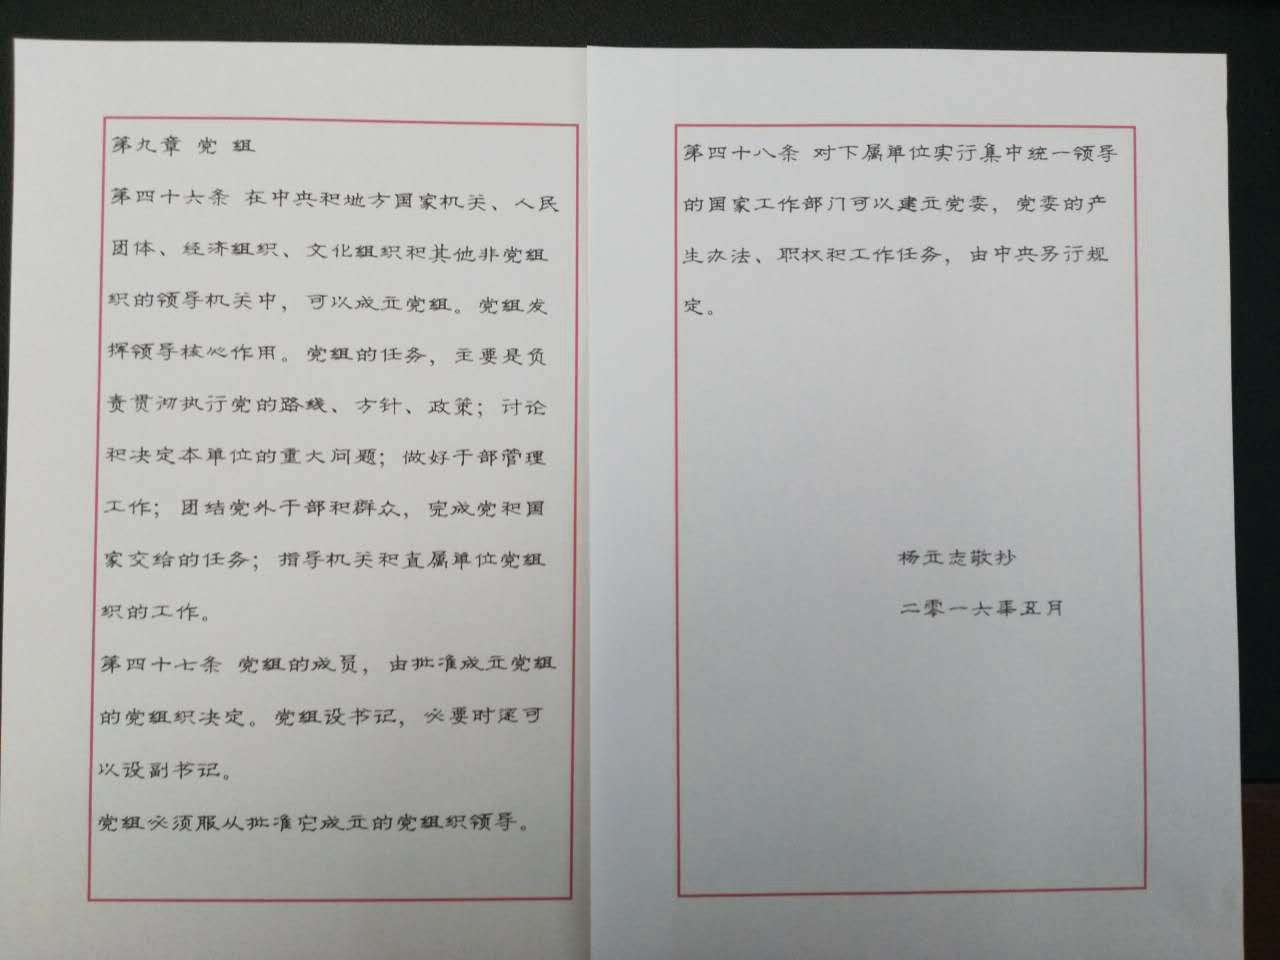 第九章 党 组
第四十六条 在中央和地方国家机关、人民
团体、经济组织、文化组织和其他非党组
织的领导机关中，可以成立党组。党组发
挥领导核心作用。党组的任务，主要是负
责贯彻执行党的路线、方针、政策；讨论
和决定本单位的重大问题；做好干部管理
工作；团结党外干部和群众，完成党和国
家交给的任务；指导机关和直属单位党组
织的工作。
第四十七条 党组的成员，由批准成立党组
的党组织决定。党组设书记，必要时还可
以设副书记。
党组必须服从批准它成立的党组织领导。
第四十八条 对下属单位实行集中统一领导
的国家工作部门可以建立党委，党委的产
生办法、职权和工作任务，由中央另行规
定。
杨立志敬抄
二零一六年五月